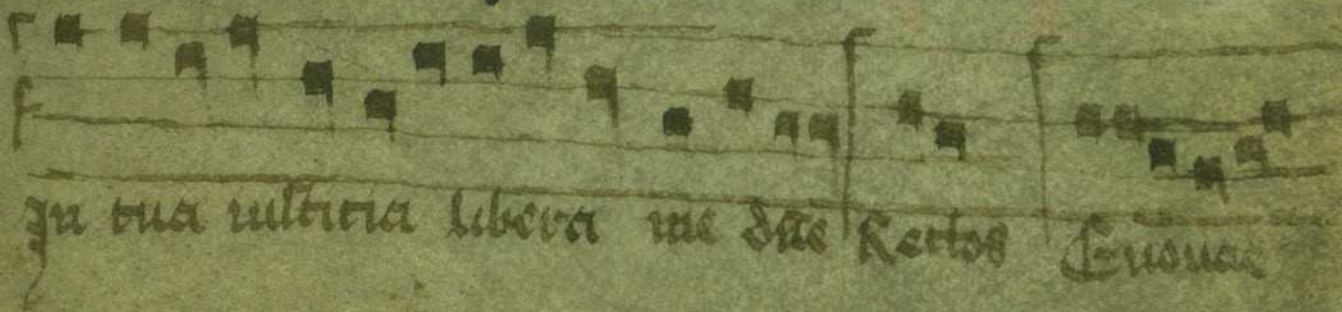 In tua iusticia libera me dn̄e Rectos Euouae